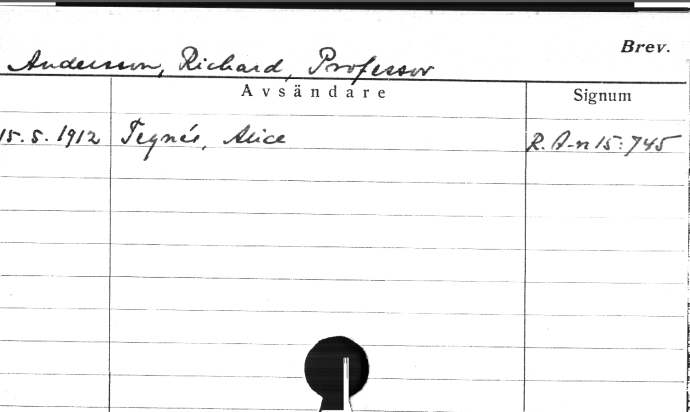 Brev.
Andersson, Richard, Professor
Avsändare Signum
15.5.1912 Tegnér, Alice R. A-n 15:745